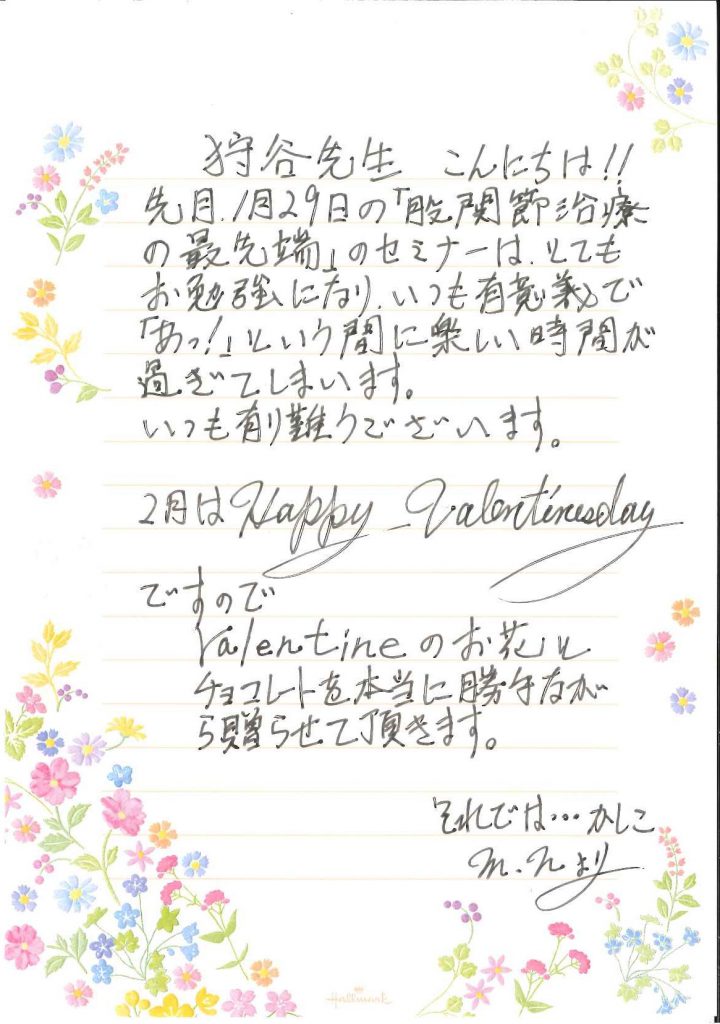 狩谷先生 こんにちは!!
先月、1月29日の「股関節治療
の最先端」のセミナーは、とても
お勉強になり、いつも有意義で
「あっ!」という間に楽しい時間が
過ぎてしまいます。
いつも有り難うございます。
2月は Happy-Valentinesday
ですので
Valentineのお花と
チョコレートを本当に勝手なが
ら贈らせて頂きます。
それでは…かしこ
M.Nより
Hallmark